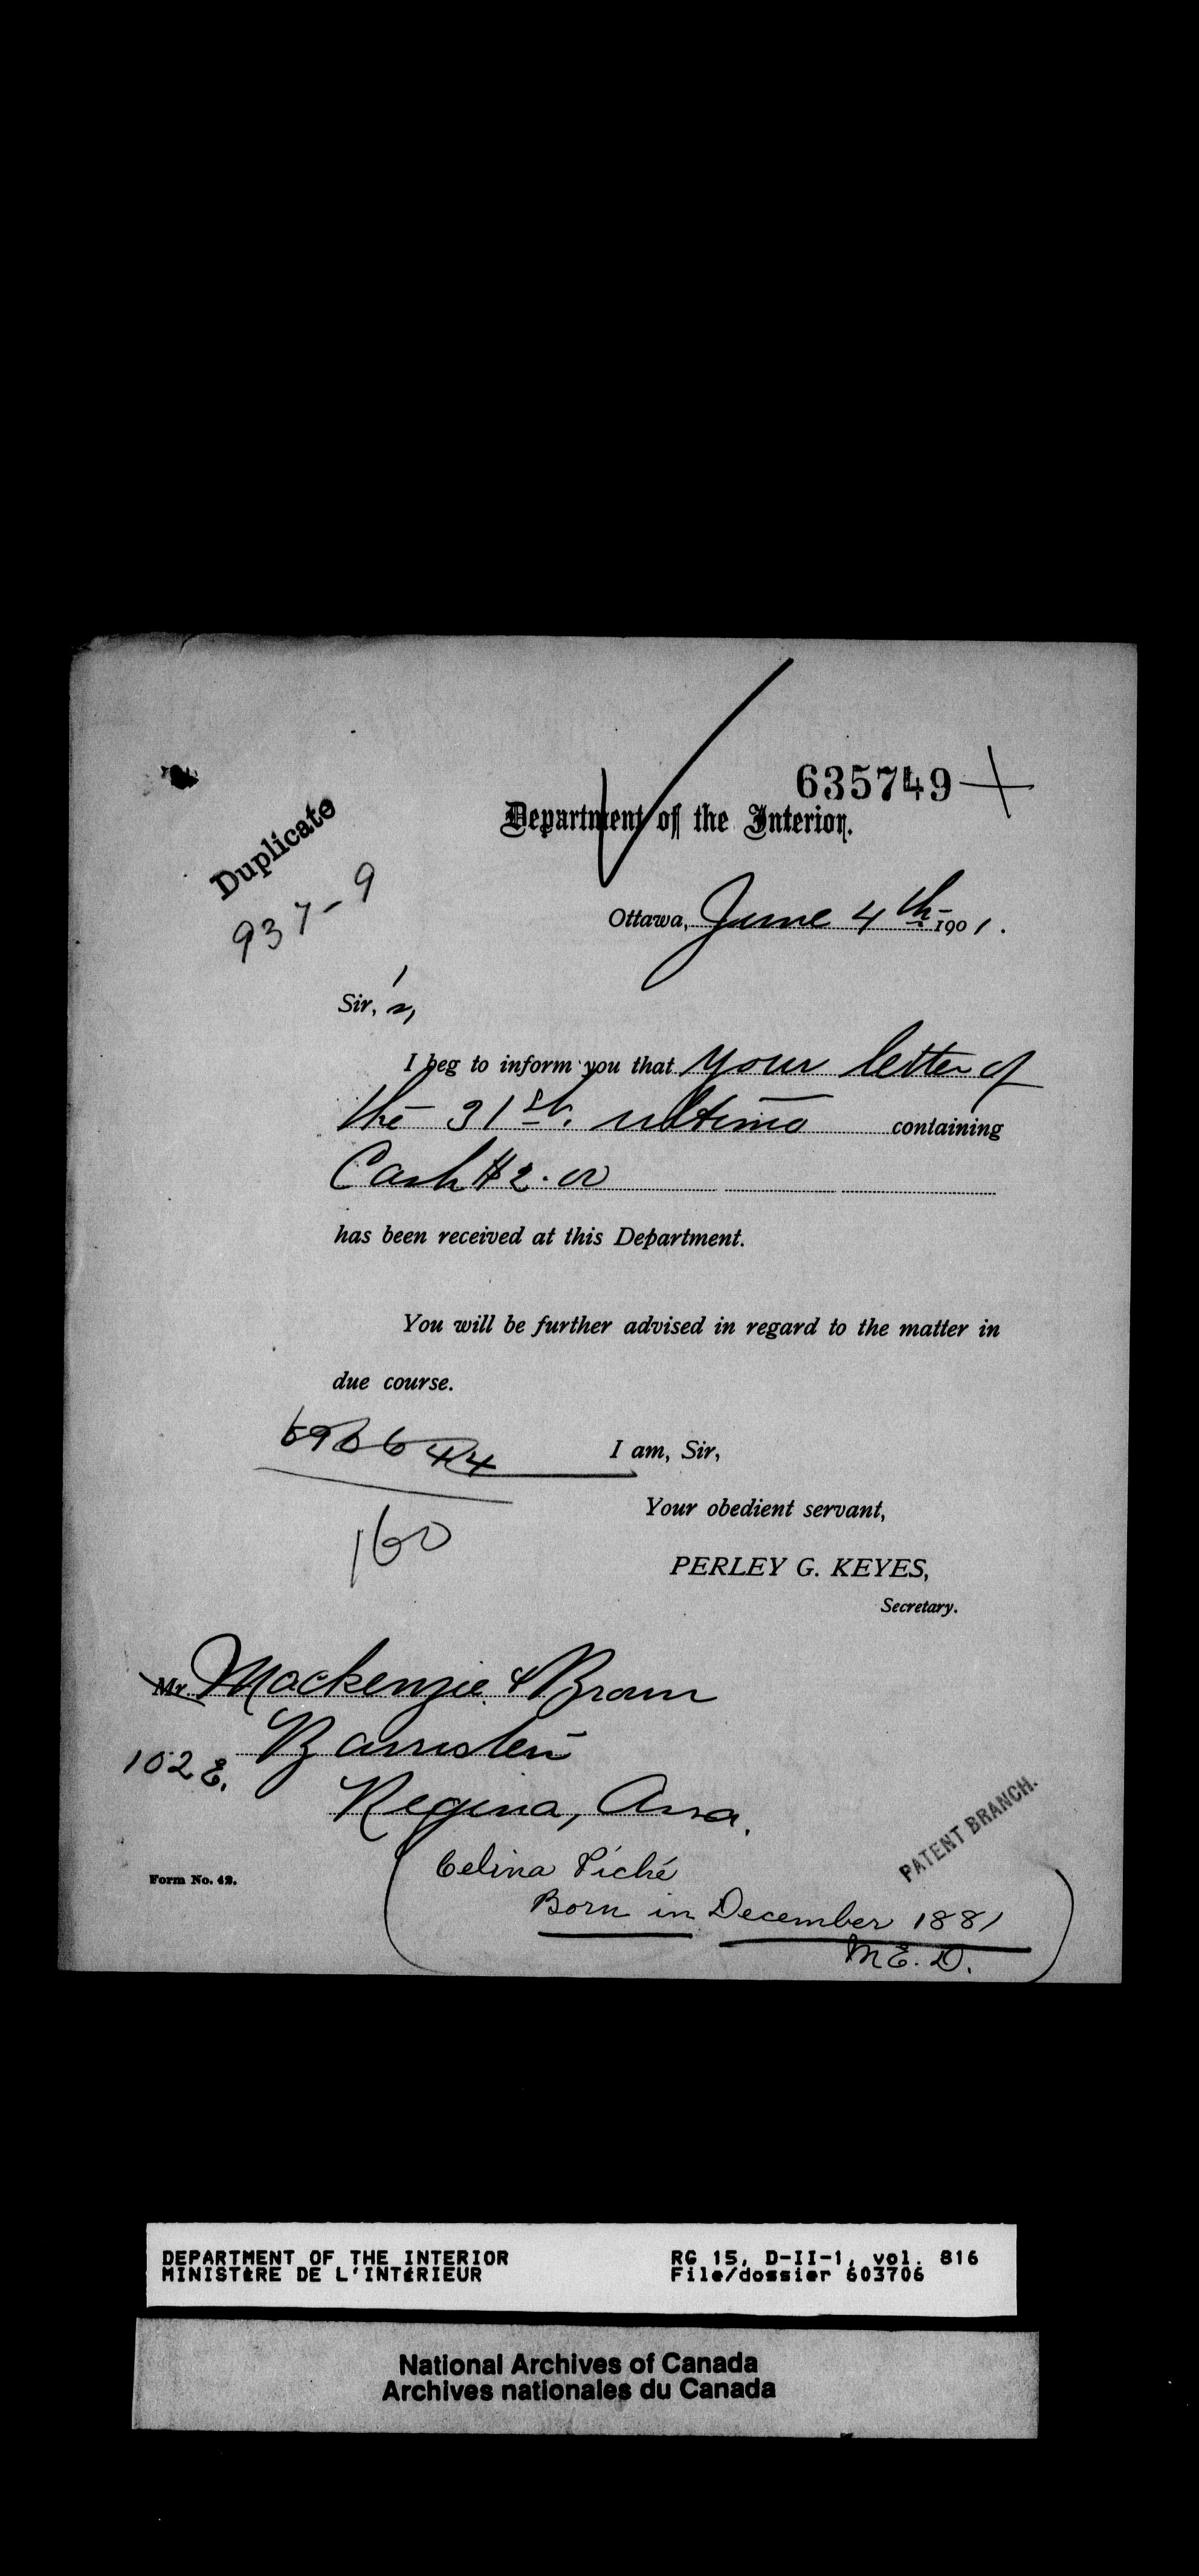 635749
Department of the Interior.
Duplicate
937-9
Ottawa, June 4th 1901.
Sir, s,
I beg to inform you that your letter of
the 31st. ultimo containing
Cash $2.00
has been received at this Department.
You will be further advised in regard to the matter in
due course.
I am, Sir,
160
Your obedient servant,
PERLEY G. KEYES,
Secretary.
Mr Mackenzie & Brown
Barristers
102 E.
Regina, Assa.
PATENT BRANCH.
Celina Piché
Form No. 42.
Born in December 1881
M.E.D.
DEPARTMENT OF THE INTERIOR
MINISTÈRE DE L'INTÉRIEUR
RG 15, D-II-1, vol. 816
File/dossier 603706
National Archives of Canada
Archives nationales du Canada